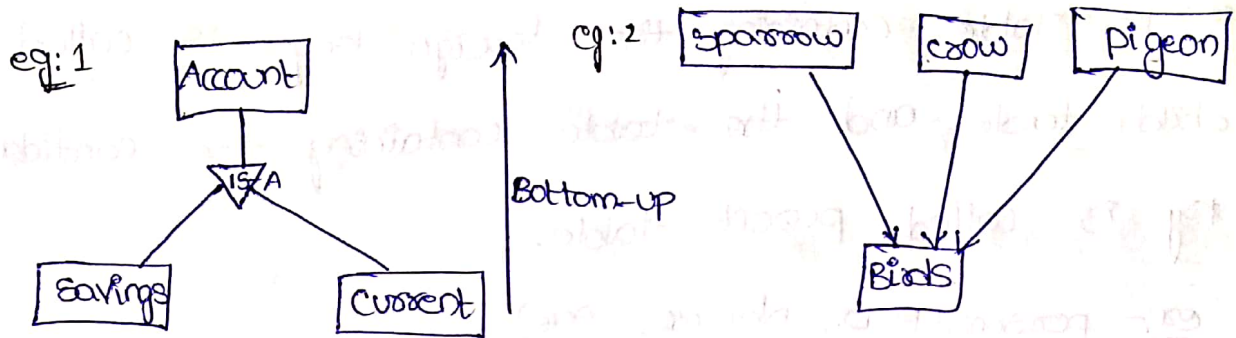 eg: 1
Account
IS-A
Savings
Current
Bottom-up
eg: 2
Sparrow
Crow
Pigeon
Birds